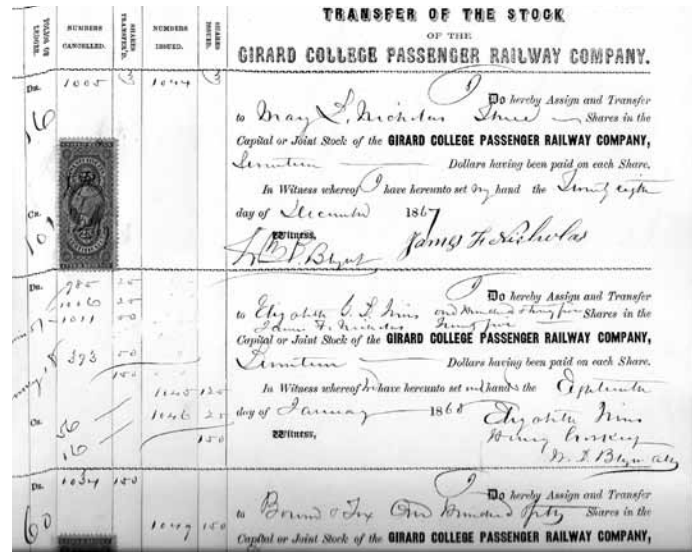 TRANSFER OF THE STOCK
OF THE
GIRARD COLLEGE PASSENGER RAILWAY COMPANY.
FOLIO OF LEDGER.
NUMBERS CANCELLED.
SHARES TRANSFER'D.
NUMBERS ISSUED.
SHARES ISSUED.
Dr. 1005 3 1044 3
16
I Do hereby Assign and Transfer
to May L. Nicholas Three Shares in the
Capital or Joint Stock of the GIRARD COLLEGE PASSENGER RAILWAY COMPANY,
Seventeen Dollars having been paid on each Share.
In Witness whereof I have hereunto set my hand the Twenty eighth
Cr. 101
day of December 1867
Witness, James F. Nicholas
Dr. 985 25
1016 25
1011 50
I Do hereby Assign and Transfer
to Elizabeth Shares in the
James F. Nicholas Twenty five
Capital or Joint Stock of the GIRARD COLLEGE PASSENGER RAILWAY COMPANY,
393 50
Seventeen Dollars having been paid on each Share.
150
1045 125
In Witness whereof have hereunto set hand the Eighteenth
Cr. 56 1046 25
day of January 1868
16 150
Witness,
Dr. 1034 150
I Do hereby Assign and Transfer
to One hundred fifty Shares in the
60 1049 150
Capital or Joint Stock of the GIRARD COLLEGE PASSENGER RAILWAY COMPANY,